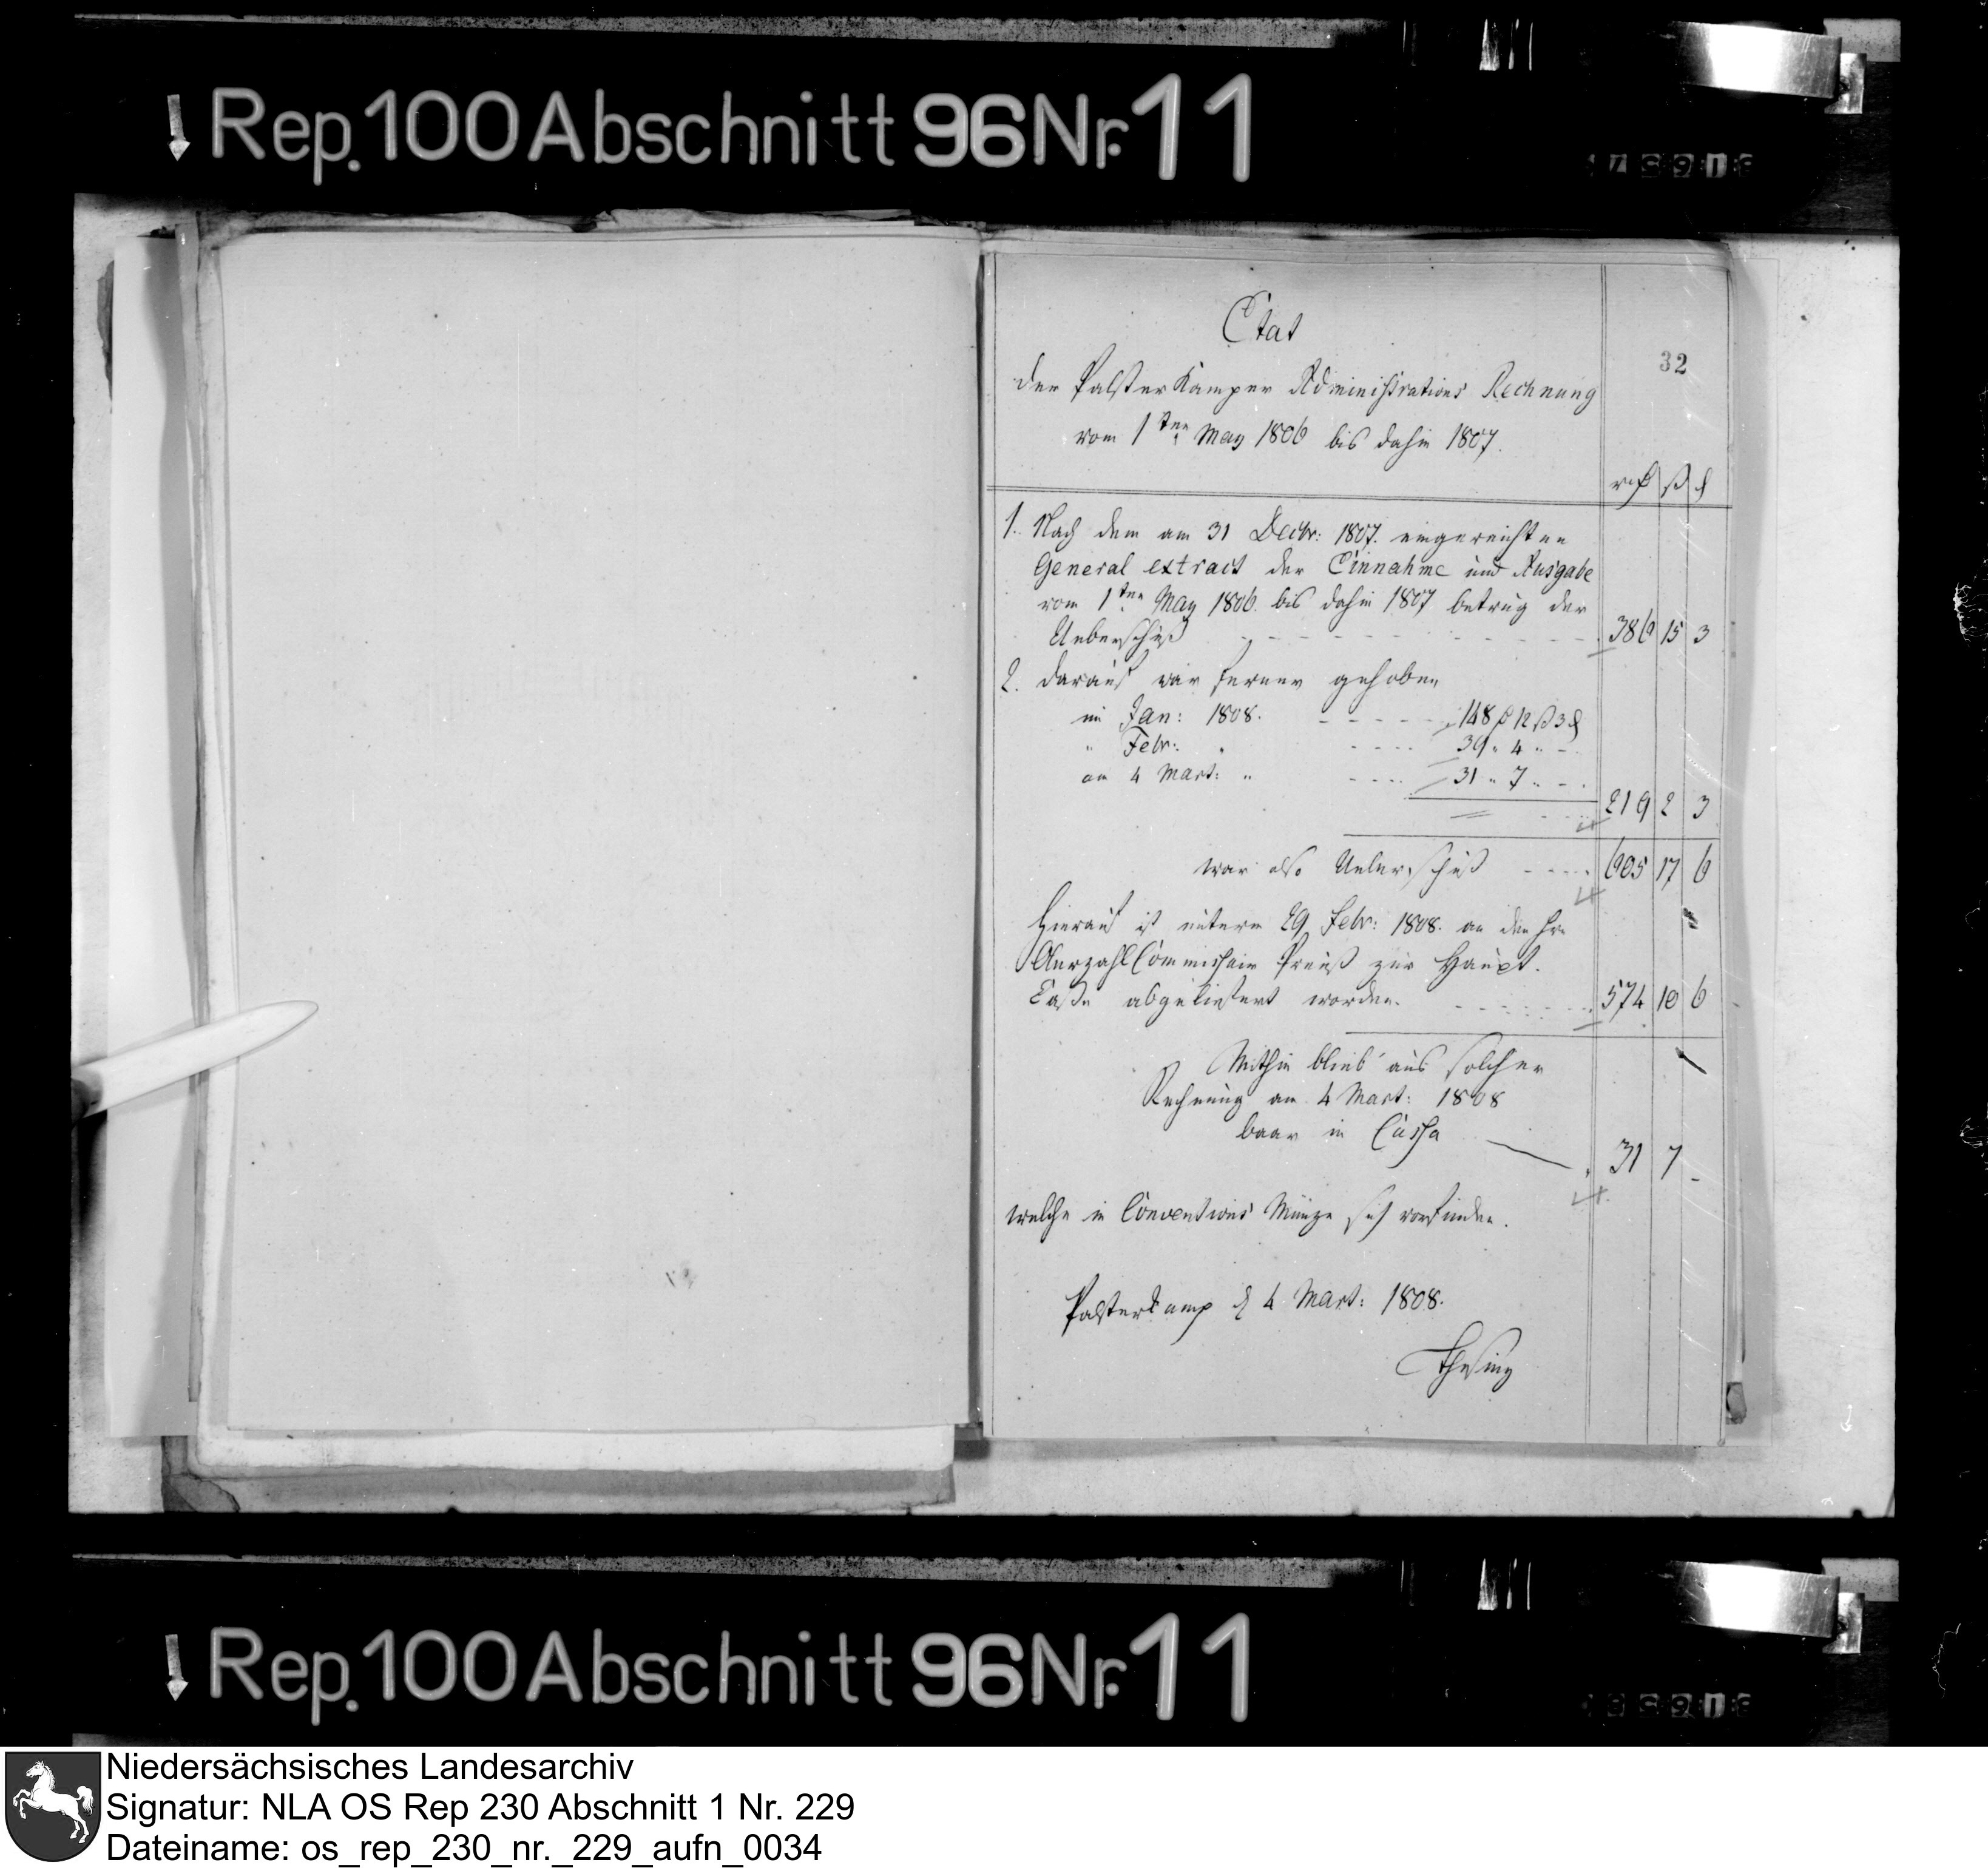 Rep. 100 Abschnitt 96 Nr. 11
32
Etat
der Palsterkamper Administrations Rechnung
vom 1ten May 1806 bis dahin 1807.
rt ß d
1. Nach dem am 31 Decbr: 1807. eingereichten
General extract der Einnahme und Ausgabe
vom 1ten May 1806. bis dahin 1807 betrug der
Ueberschuß - - - - - - 386 15 3
2. darauf war ferner gehoben
im Jan: 1808. - - - - - 148 rt 12 ß 3 d
" Febr: " - - - - 39 " 4 " -
am 4 Mart: " - - - - 31 " 7 " -
219 2 3
war also Ueberschuß - - - - 605 17 6
Hierauf ist unterm 29 Febr: 1808. an den Hrn
Commissair Preuß zur Haupt-
Casse abgeliefert worden. - - - - 574 10 6
Mithin blieb aus solcher
Rechnung am 4 Mart: 1808
baar in Cassa 31 7 -
welche in Conventions Münze sich vorfinden.
Palsterkamp d 4 Mart: 1808.
Thesing
Rep. 100 Abschnitt 96 Nr. 11
Niedersächsisches Landesarchiv
Signatur: NLA OS Rep 230 Abschnitt 1 Nr. 229
Dateiname: os_rep_230_nr._229_aufn_0034